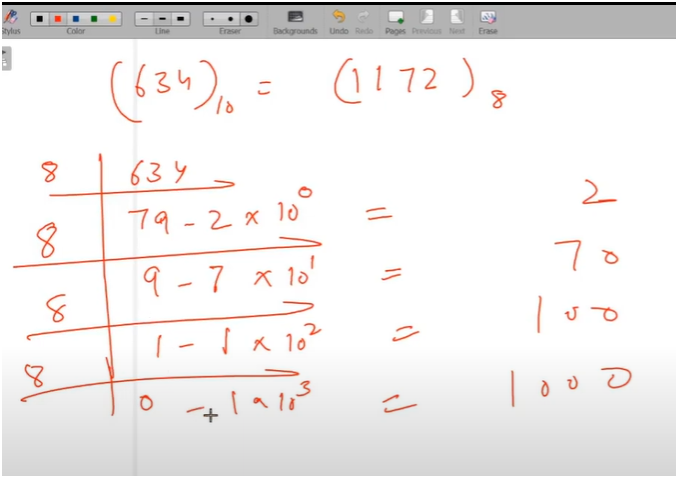 Stylus Color Line Eraser Backgrounds Undo Redo Pages Previous Next Erase
(634)₁₀ = (1172)₈
8 | 634
8 | 79 - 2 × 10⁰ = 2
8 | 9 - 7 × 10¹ = 70
8 | 1 - 1 × 10² = 100
8 | 0 - 1 × 10³ = 1000